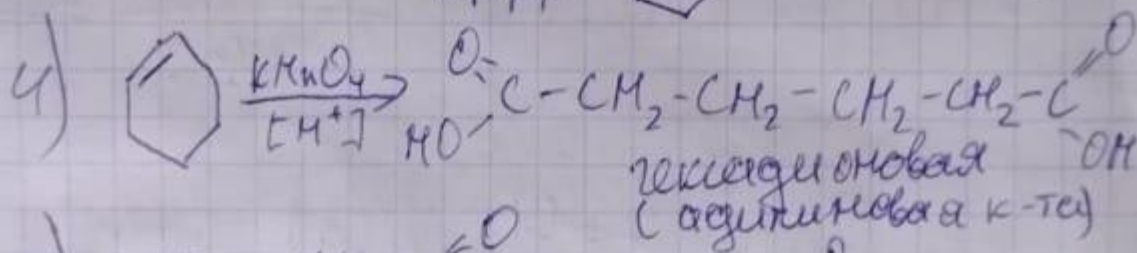 4) KMnO4 [H+] O=C(HO)-CH2-CH2-CH2-CH2-C(=O)OH
гександионовая
(адипиновая к-та)
O